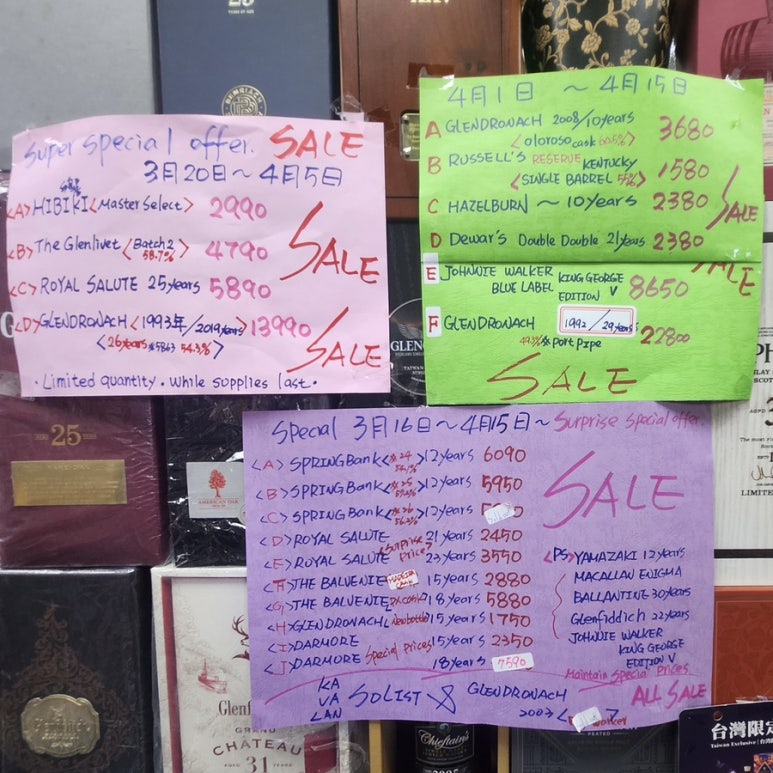 Super special offer. SALE
3月20日~4月5日
<A> HIBIKI <Master Select> 2990
<B> The Glenlivet <Batch 2> 4790
58.7%
<C> ROYAL SALUTE 25years 5890
<D> GLENDRONACH <1993年/2019years> 13990
<26years #5863 54.3%>
SALE
SALE
·Limited quantity. while supplies last·
4月1日 ~ 4月15日
A GLENDRONACH 2008/10years 3680
<oloroso cask 60.5%>
B RUSSELL'S RESERVE KENTUCKY 1580
<SINGLE BARREL 55%>
C HAZELBURN ~ 10years 2380
D Dewar's Double Double 21years 2380
SALE
SALE
E JOHNNIE WALKER KING GEORGE 8650
BLUE LABEL EDITION V
F GLENDRONACH 1992/29years 22800
49.3% Port pipe
SALE
Special 3月16日~4月15日~Surprise special offer.
<A> SPRINGBank <#24 54.1%> 12years 6090
<B> SPRINGBank <#25 > 12years 5950
<C> SPRINGBank <#26 56.2%> 12years
<D> ROYAL SALUTE 21years 2450
<Surprise Price>
<E> ROYAL SALUTE 23years 3550
<F> THE BALVENIE MADEIRA CASK 15years 2880
<G> THE BALVENIE PX cask 18years 5880
<H> GLENDRONACH New bottle 15years 1750
<I> DARMORE 15years 2350
Special Prices
<J> DARMORE 18years 7590
SALE
<PS> YAMAZAKI 12years
MACALLAN ENIGMA
BALLANTINE 30years
Glenfiddich 22years
JOHNNIE WALKER
KING GEORGE
EDITION V
Maintain Special Prices
ALL SALE
KA
VA
LAN
SOLIST & GLENDRONACH
2003
25
YEARS OF AGE
BENRIACH
25
AMERICAN OAK
Glenf
GRAND
CHATEAU
31
Chieftain's
PEATED
LIMITED
台灣限定
Taiwan Exclusive